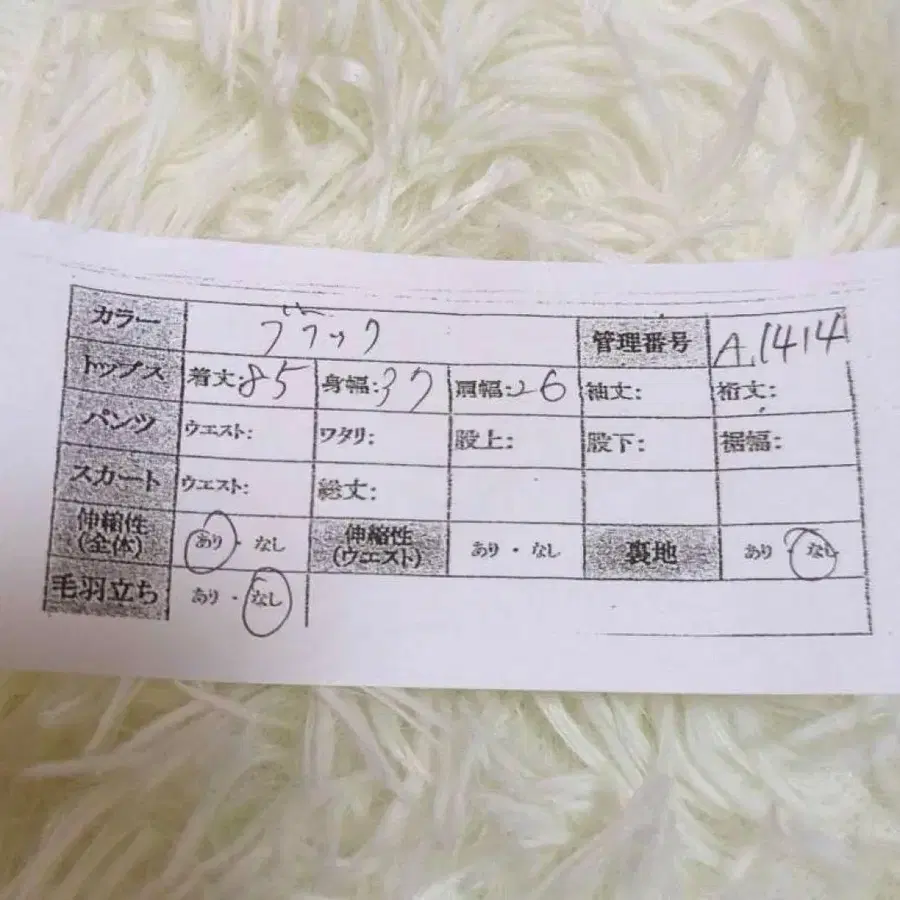 カラー ブラック 管理番号 A.1414
トップス 着丈:85 身幅:37 肩幅:26 袖丈: 裄丈:
パンツ ウエスト: ワタリ: 股上: 股下: 裾幅:
スカート ウエスト: 総丈:
伸縮性(全体) あり・なし 伸縮性(ウエスト) あり・なし 裏地 あり・なし
毛羽立ち あり・なし